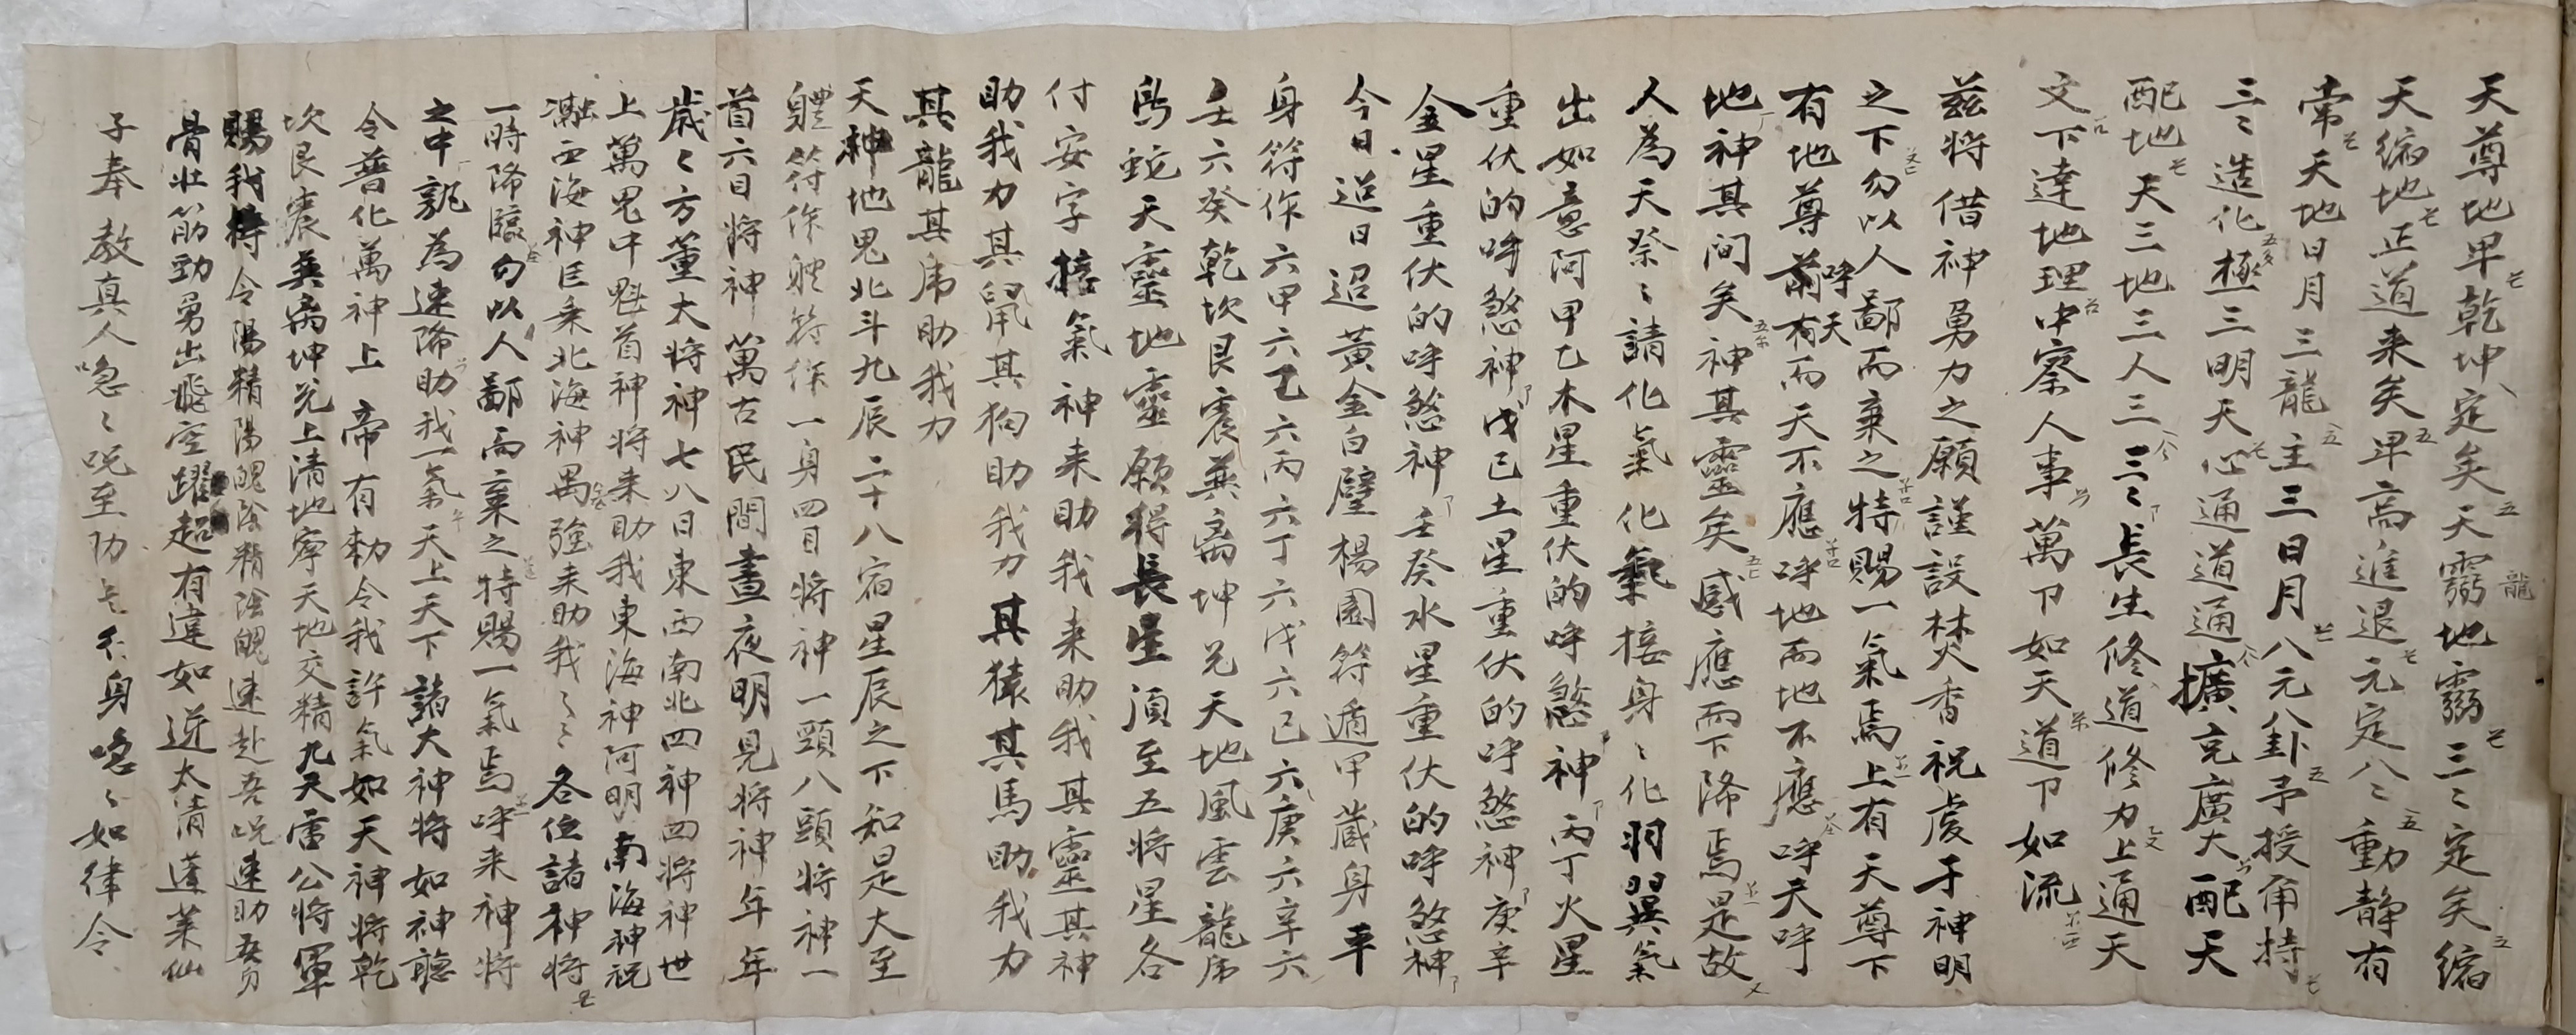 天尊地卑乾坤定矣天靈地靈三〻定矣縮
天縮地正道来矣卑高進退元定八〻動静有
常天地日月三龍主三日月八元八卦予授甭持
三〻造化極三明天心通道通擴充廣大配天
配地天三地三人三三〻長生修道修力上通天
文下達地理中察人事萬卩如天道卩如流
兹将借神勇力之願謹設焚香祝虔于神明
之下勿以人鄙而棄之特賜一氣焉上有天尊下
有地尊前呼天有而天不應呼地而地不應呼天呼
地神其间矣神其靈矣感應而下降焉是故
人為天祭〻請化氣化氣接身〻化羽翼氣
出如意阿甲乙木星重伏的呼煞神丙丁火星
重伏的呼煞神戊己土星重伏的呼煞神庚辛
金星重伏的呼煞神壬癸水星重伏的呼煞神
今日迢日迢黄金白壁楊園符遁甲蔵身平
身符作六甲六乙六丙六丁六戊六己六庚六辛六
壬六癸乾坎艮震巽离坤兑天地風雲龍虎
鳥蛇天靈地靈願得長星頂至五将星各
付安字接氣神来助我来助我其靈其神
助我力其鼠其狗助我力其猿其馬助我力
其龍其虎助我力
天神地鬼北斗九辰二十八宿星辰之下知是大至
體符作體符作一身四目将神一頭八頭将神一
首六目将神萬古民間晝夜明見将神年年
歳〻方董大将神七八日東西南北四神四将神世
上萬鬼中魁首神将来助我東海神阿明南海神祝
瀜西海神臣乘北海神禺強来助我〻〻各位諸神将
一時降臨勿以人鄙而棄之特賜一氣焉呼来神将
之中孰為速降助我一氣天上天下諸大神将如神聽
令普化萬神上帝有勅令我許氣如天神将乾
坎艮震巽离坤兑上清地寧天地交精九天雷公将軍
賜我将令陽精陽魄陰精陰魄速赴吾呪速助吾身
骨壮筋勁勇出飛空躍超有違如逆太清蓬莱仙
子奉教真人唸〻呪至功七行身唸〻如律令